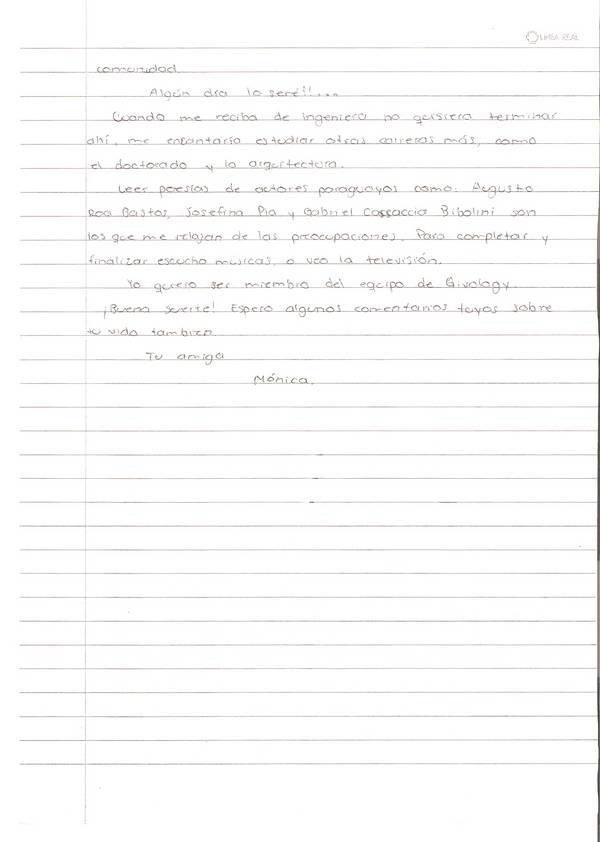 LINEA REAL
comunidad.
Algún día lo seré!!...
Cuando me reciba de ingeniera no quisiera terminar
ahí, me encantaría estudiar otras carreras más, como
el doctorado y la arquitectura.
Leer poesías de actores paraguayos como: Augusto
Roa Bastos, Josefina Pla y Gabriel Cassaccia Bibolini son
los que me relajan de las preocupaciones. Para completar y
finalizar escucho músicas, o veo la televisión.
Yo quiero ser miembro del equipo de Givology.
¡Buena suerte! Espero algunos comentarios tuyos sobre
tu vida también.
Tu amiga
Mónica.